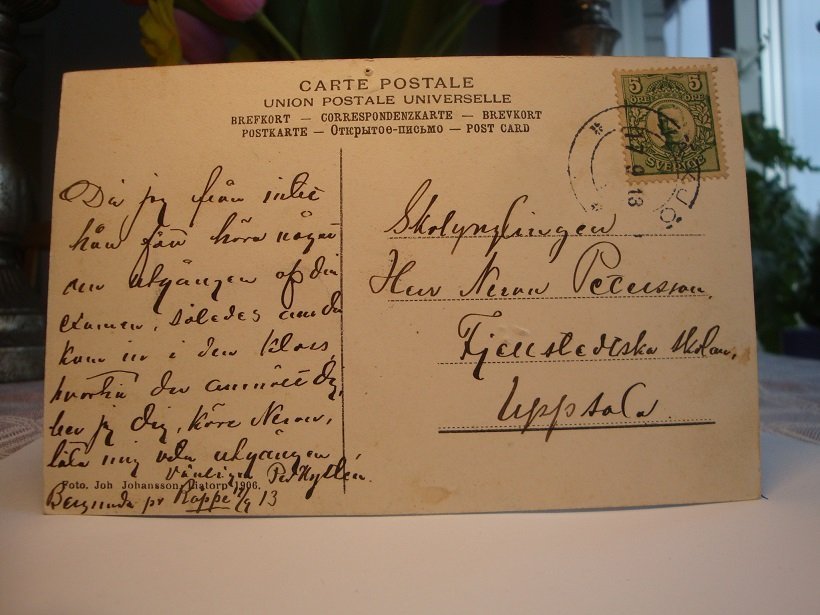 CARTE POSTALE
UNION POSTALE UNIVERSELLE
BREFKORT — CORRESPONDENZKARTE — BREVKORT
POSTKARTE — Открытое-письмо — POST CARD
5 5
ÖRE ÖRE
SVERIGE
13
Då jag från intet
håll fått höra någon
om utgången af din
examen, således om du
kom in i den klass,
hvartill du anmält dig,
ber jag dig, käre Neron,
låta mig veta utgången
Vänligen Per Hyltén.
Foto. Joh Johansson, Liatorp 1906.
Bergunda pr Räppe 9/9 13
Skolynglingen
Herr Neron Petersson,
Fjellstedtska skolan,
Uppsala